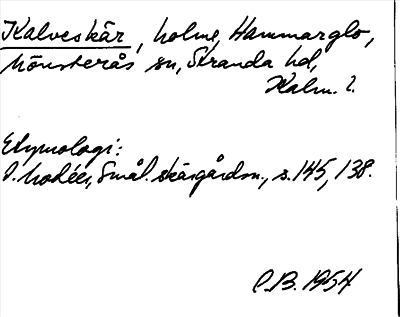 Kalveskär, holme, Hammarglo,
Mönsterås sn, Stranda hd,
Kalm. l.
Etymologi:
I. Modéer, Smål. skärgårdsn., s. 145, 138.
C.B. 1954